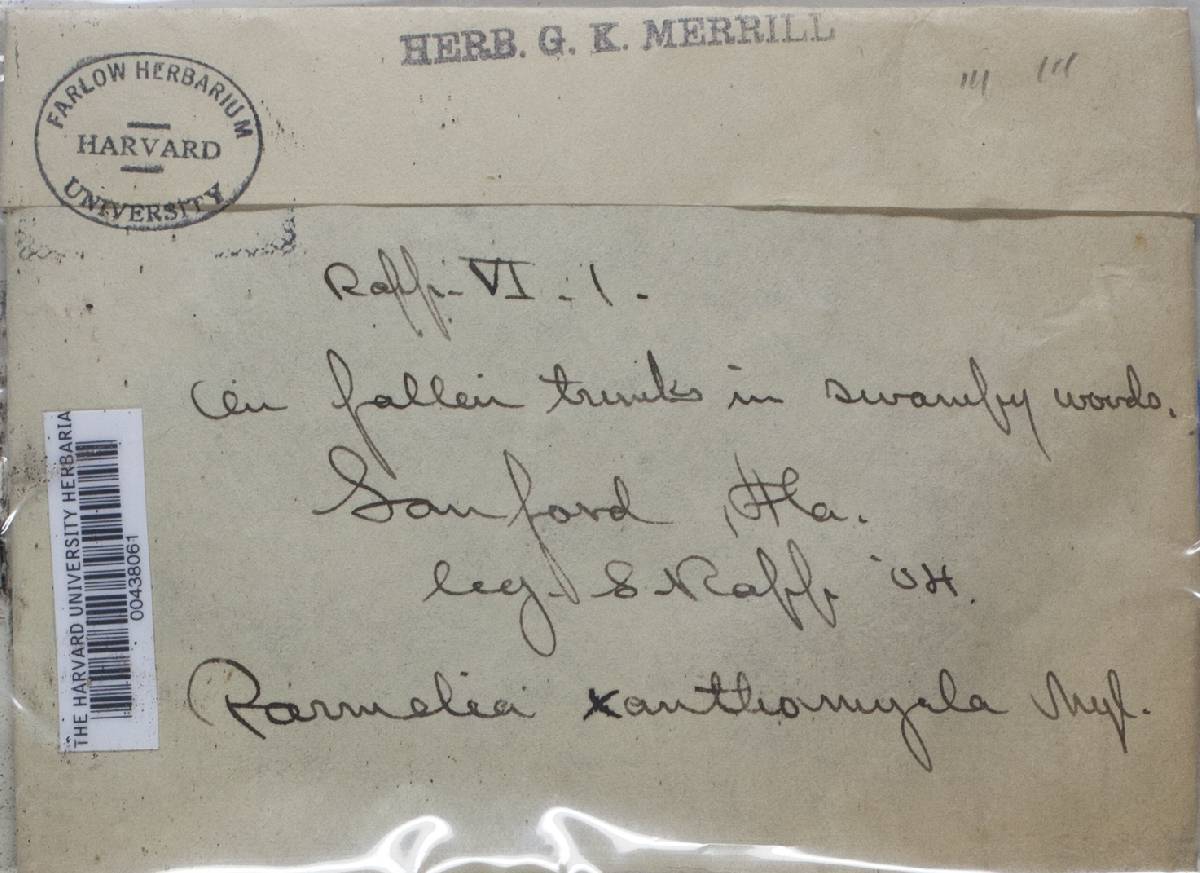 HERB. G. K. MERRILL
FARLOW HERBARIUM
HARVARD
UNIVERSITY
Rapp. VI. 1.
On fallen trunks in swampy woods.
Sanford, Fla.
leg. S Rapp.
Parmelia xanthomyela Nyl.
THE HARVARD UNIVERSITY HERBARIA
00438061